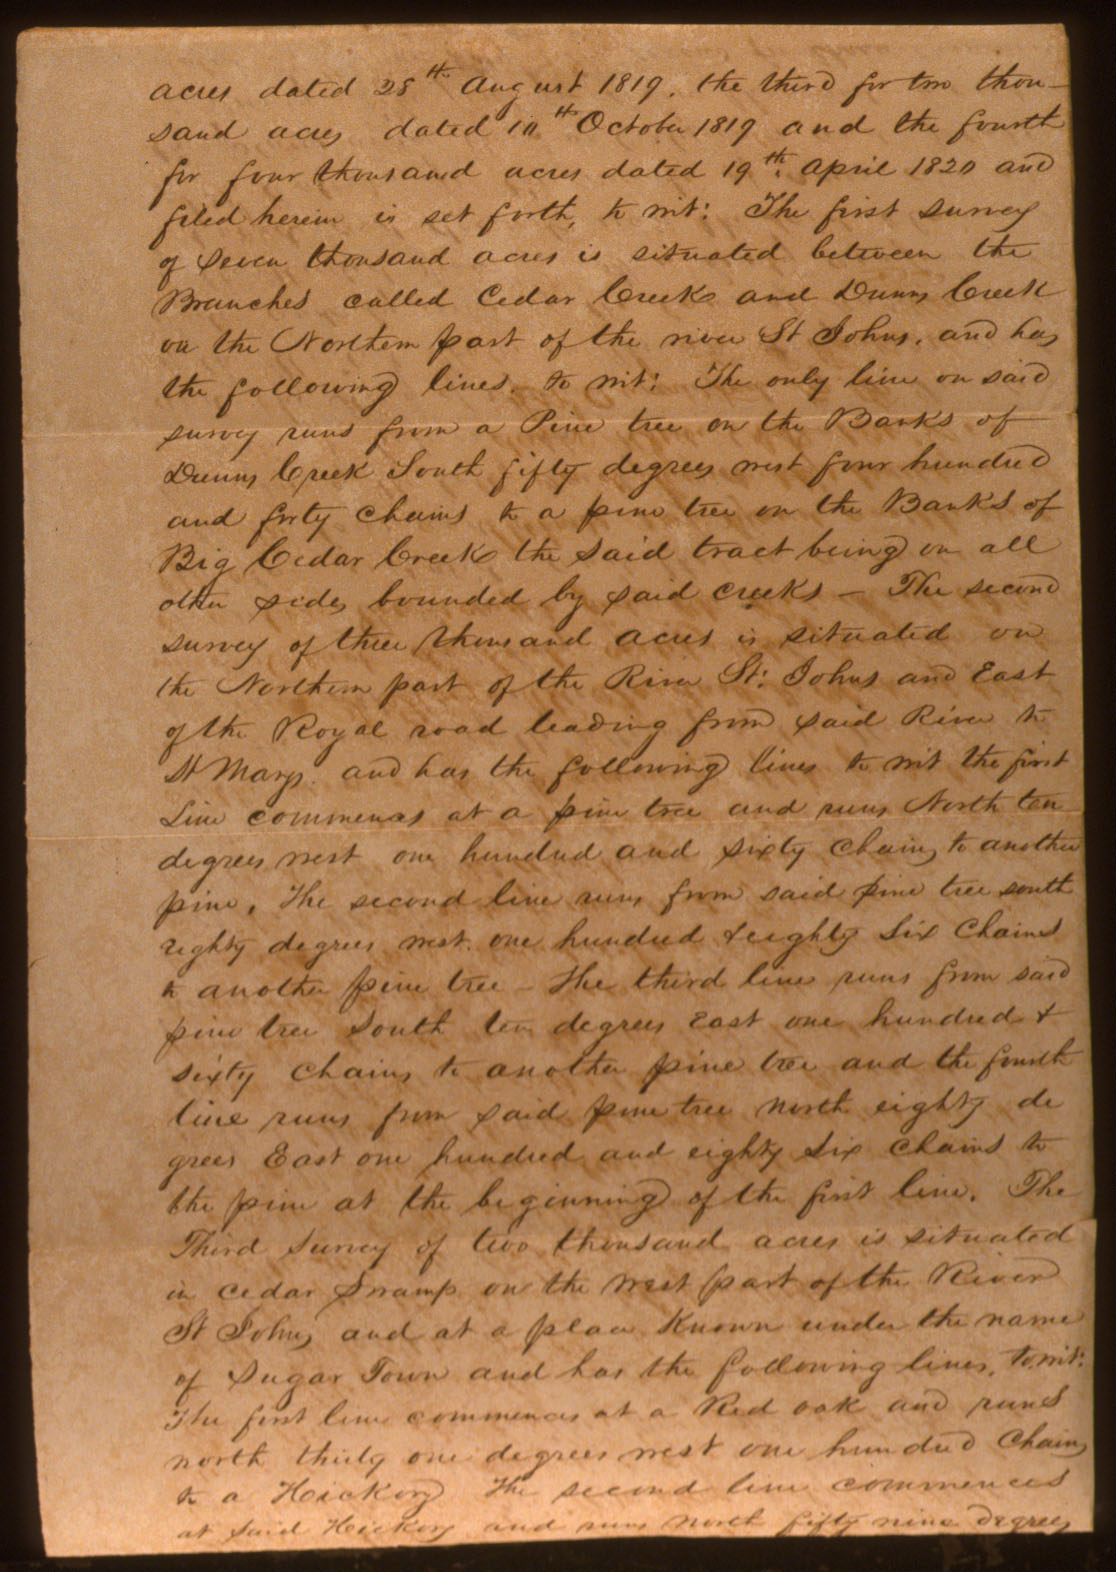 acres dated 28th August 1819. the third for two thou-
sand acres dated 10th October 1819 and the fourth
for four thousand acres dated 19th. April 1820 and
filed herein is set forth, to wit: The first survey
of seven thousand acres is situated between the
Branches called Cedar Creek and Dunns Creek
on the Northern part of the river St Johns, and has
the following lines, to wit: The only line on said
survey runs from a Pine tree on the Banks of
Dunns Creek South fifty degrees west four hundred
and forty chains to a pine tree on the Banks of
Big Cedar Creek the said tract being on all
other sides bounded by said creeks — The second
survey of three thousand acres is situated on
the Northern part of the River St: Johns and East
of the Royal road leading from said River to
St Marys. and has the following lines to wit the first
Line commences at a pine tree and runs North ten
degrees west one hundred and sixty chains to another
pine, The second line runs from said pine tree south
eighty degrees west. one hundred & eighty six chains
to another pine tree – The third line runs from said
pine tree South ten degrees East one hundred &
sixty chains to another pine tree and the fourth
line runs from said pine tree north eighty de
grees East one hundred and eighty six chains to
the pine at the beginning of the first line. The
Third survey of two thousand acres is situated
in cedar Swamp on the west part of the River
St Johns and at a place Known under the name
of Sugar Town and has the following lines, to wit:
The first line commences at a Red oak and runs
north thirty one degrees west one hundred Chains
to a Hickory The second line commences
at said Hickory and runs north fifty nine degrees